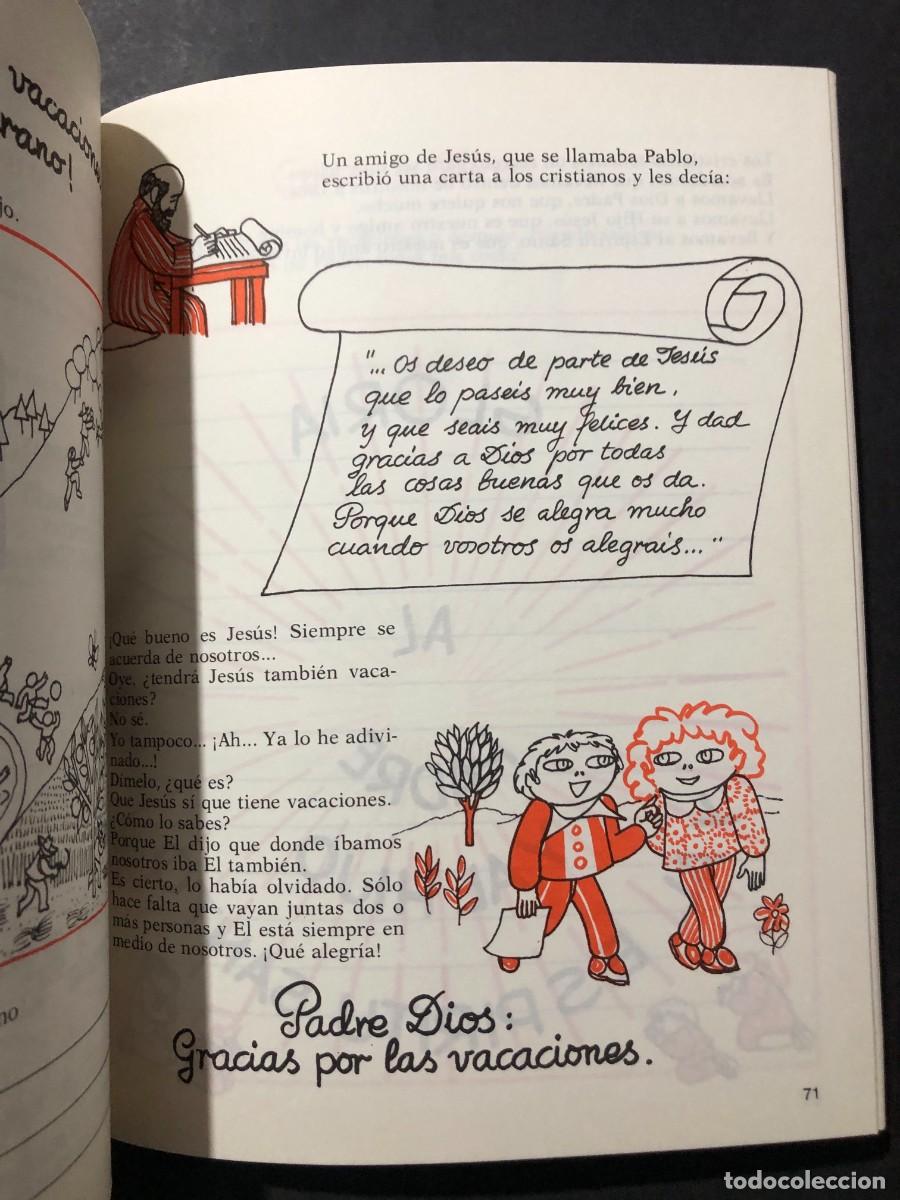 vacacione
rano!
jo.
no
Un amigo de Jesús, que se llamaba Pablo,
escribió una carta a los cristianos y les decía:
"... Os deseo de parte de Jesús
que lo paseis muy bien,
y que seais muy felices. Y dad
gracias a Dios por todas
las cosas buenas que os da.
Porque Dios se alegra mucho
cuando vosotros os alegrais..."
¡Qué bueno es Jesús! Siempre se
acuerda de nosotros...
Oye, ¿tendrá Jesús también vaca-
ciones?
No sé.
Yo tampoco... ¡Ah... Ya lo he adivi-
nado...!
Dímelo, ¿qué es?
Que Jesús sí que tiene vacaciones.
¿Cómo lo sabes?
Porque El dijo que donde íbamos
nosotros iba El también.
Es cierto, lo había olvidado. Sólo
hace falta que vayan juntas dos o
más personas y El está siempre en
medio de nosotros. ¡Qué alegría!
Padre Dios:
Gracias por las vacaciones.
71
todocoleccion